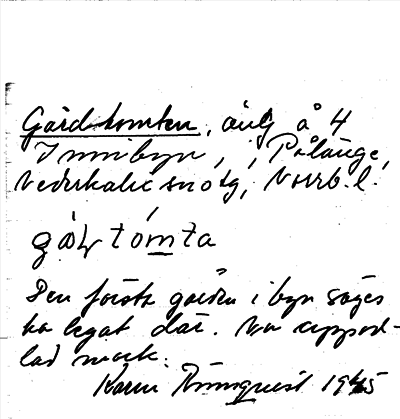 Gårdstomten, äng å 4
Innibyn, i Pålänge,
Nederkalix sng, Norrb. l.
gàḷtómta
Den första gården i byn säges
ha legat där. Nu uppod-
lad mark.
Karin Rönnquist 1945